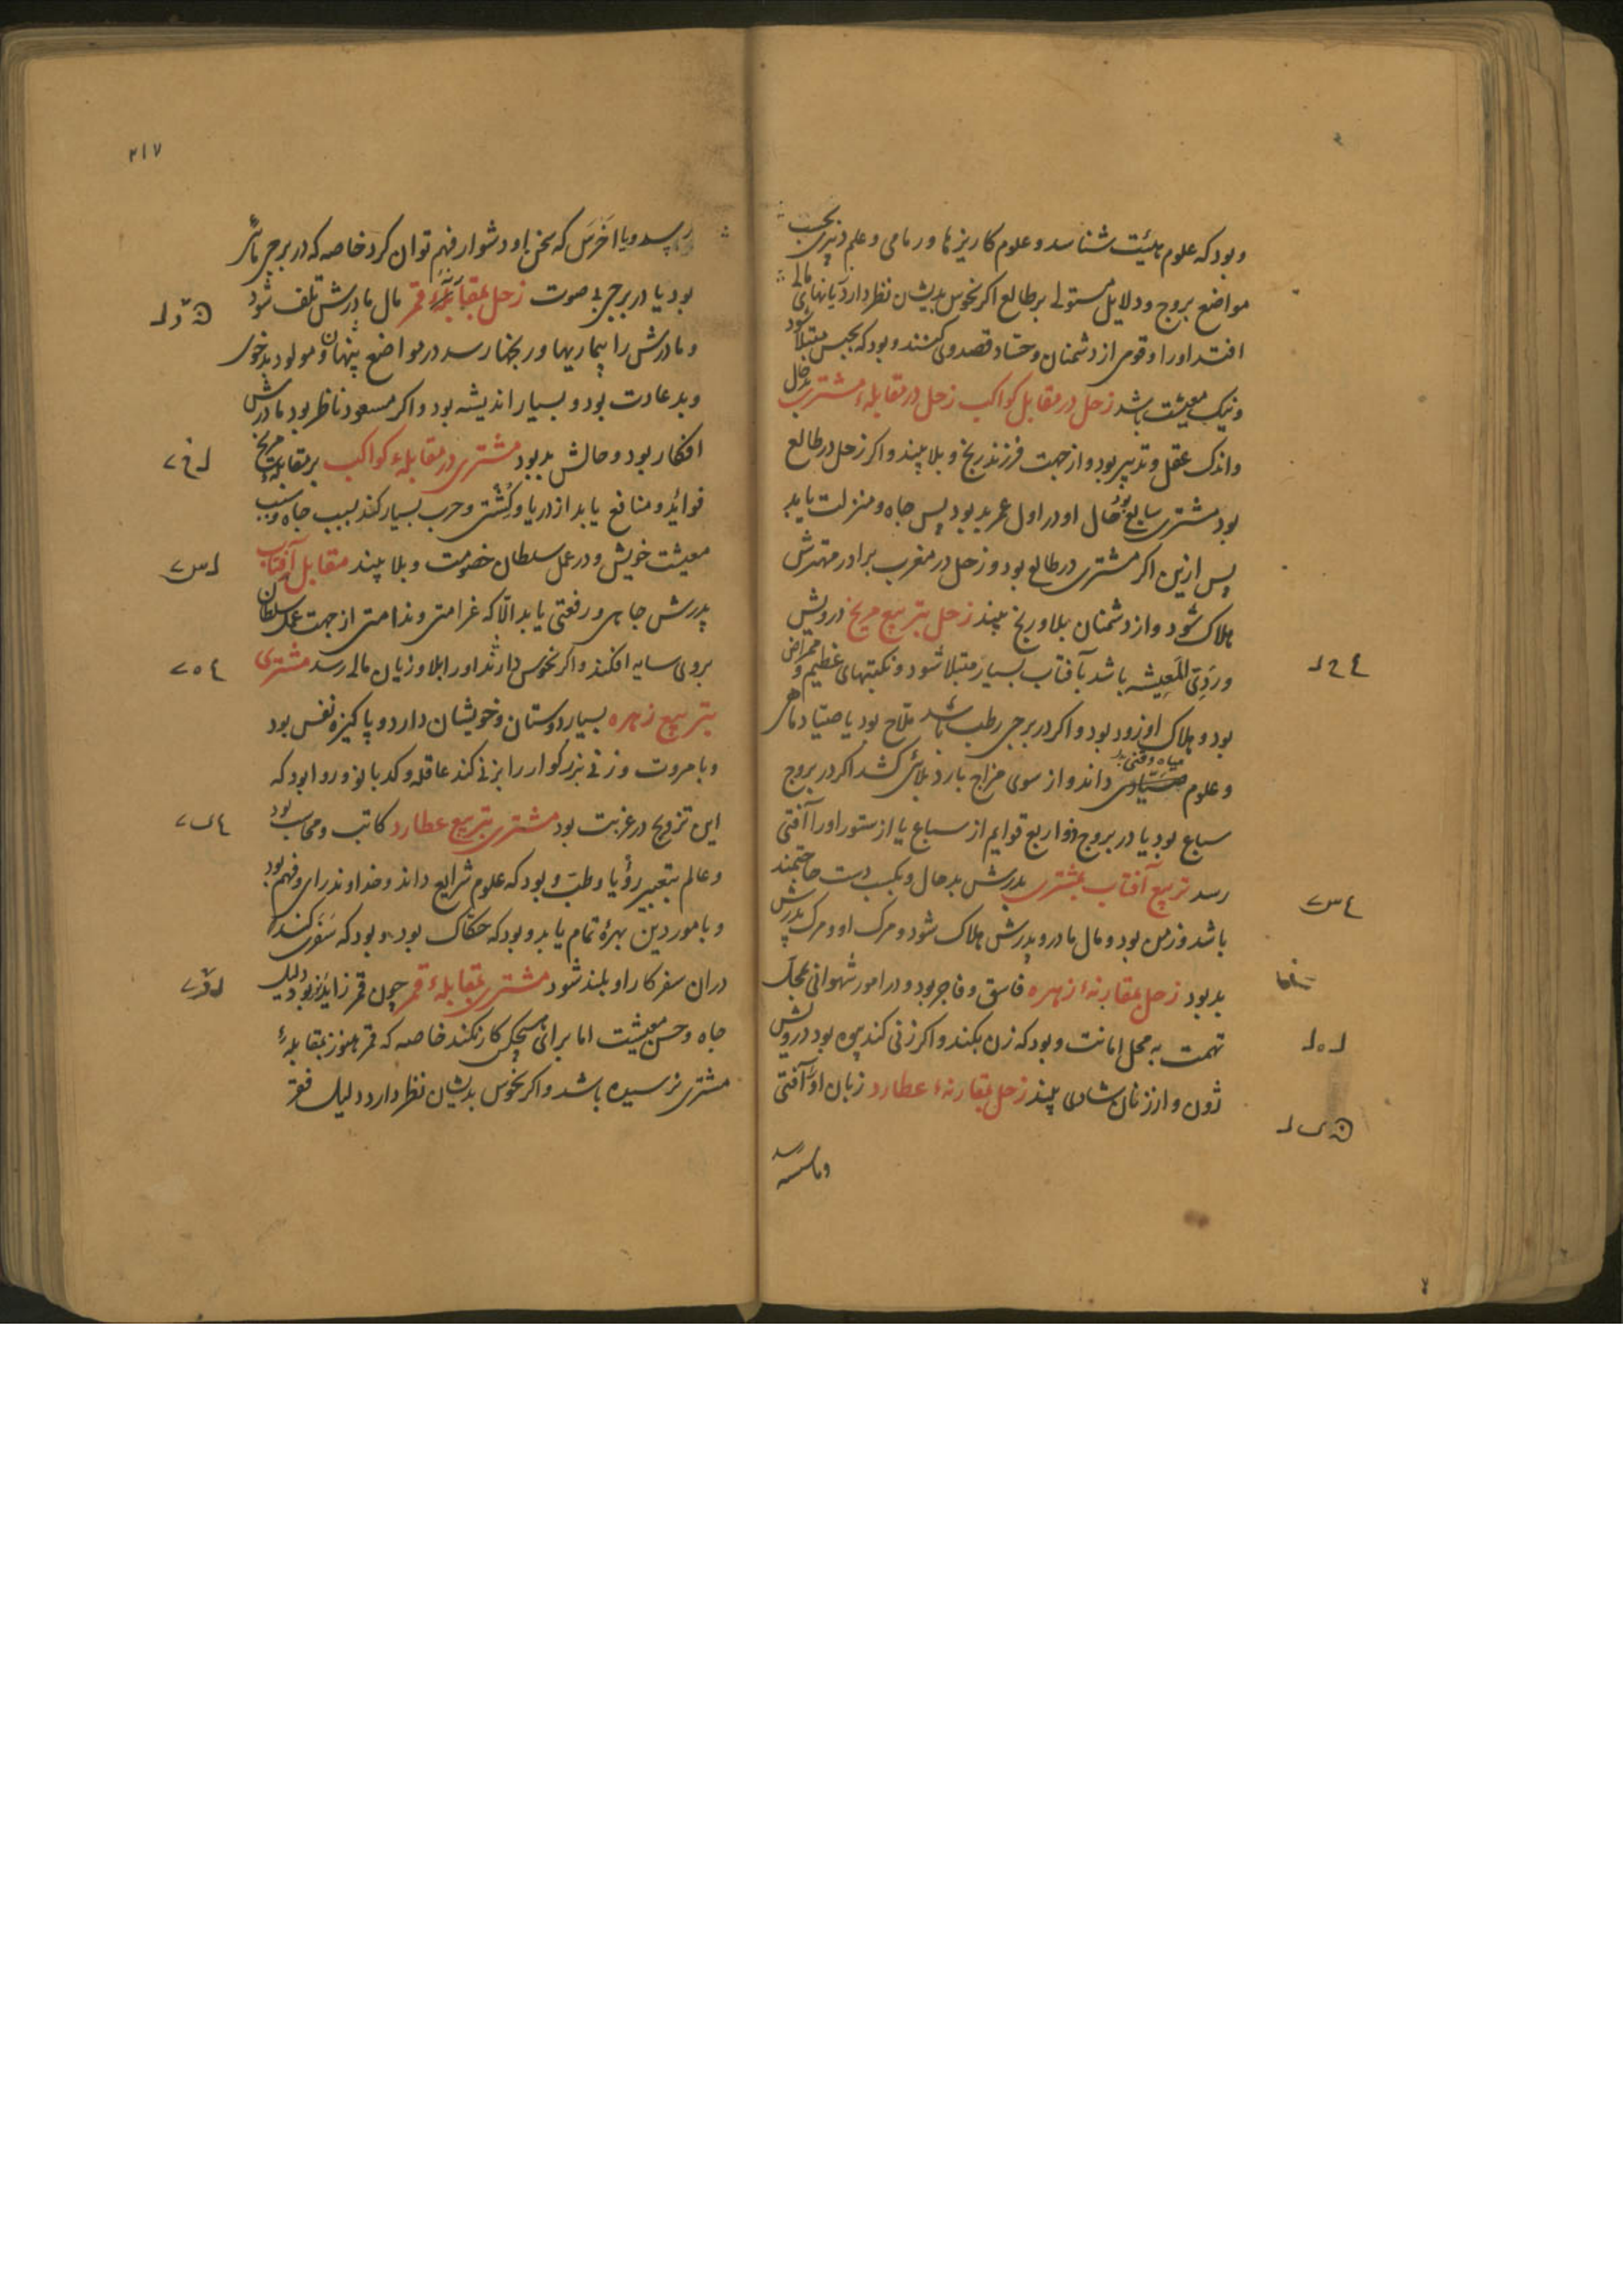 وبود که علوم هیئت شناسد و علوم کاریزها ورمامی وعلم دبیری بحسب
مواضع بروج ودلایل مستولی برطالع اکر نحوس بدیشان نظر دارد زیانهای مالی
افتد اورا وقومی از دشمنان وحساد قصد وی کنند و بود که بحبس مبتلا شود
ونیک معیشت باشد زحل در مقابل کواکب زحل در مقابلهٔ مشتری بدحال
واندک عقل وتدبیر بود و از جهت فرزند رنج و بلا بیند و اکر زحل در طالع
بود مشتری سابع بود حال او در اول عمر بد بود پس جاه و منزلت یابد
پس ازین اکر مشتری در طالع بود و زحل در مغرب برادر مهترش
هلاک شود و از دشمنان بلا و رنج بیند زحل بتربیع مریخ درویش
وردی المعیشه باشد بآفتاب بسیار مبتلا شود و نکبتهای عظیم و ممراض
بود و هلاک او زود بود و اکر در برجی رطب باشد ملاح بود یا صیاد ماهی
میاه وقنی بد
وعلوم صیادی داند و از سوی مزاج بارد بلائی کشد اکر در بروج
سباع بود یا در بروج ذوا ربع قوایم از سباع یا از ستور اورا آفتی
رسد تربیع آفتاب بمشتری پدرش بدحال و بکسب دست حاجتمند
باشد وزمن بود و مال مادر و پدرش هلاک شود و مرک او و مرک پدرش
بد بود زحل بمقارنهٔ زهره فاسق و فاجر بود و در امور شهوانی بمحل
تهمت به محل امانت و بود که زن نکند و اکر زنی کند بیوه بود درویش
ودون و از زنان شادی بیند زحل بمقارنهٔ عطارد زبان او را آفتی
رسد
۲۱۷
رسد ویا اخرس که سخن او دشوار فهم توان کرد خاصه که در برجی مائی
بود یا در برجی بی صوت زحل بمقابلهٔ قمر مال مادرش تلف شود
ومادرش را بیماریها و رنجها رسد در مواضع پنهان و مولود بدخوی
وبد عادت بود و بسیار اندیشه بود و اکر مسعود ناظر بود مادرش
افکار بود و حالش بد بود مشتری در مقابلهٔ کواکب بر مقابلهٔ مریخ
فوائد و منافع یابد از دریا و کشتی و حرب بسیار کند بسبب جاه و سبب
معیشت خویش و در عمل سلطان خصومت و بلا بیند مقابل آفتاب
پدرش جاهی و رفعتی یابد الا که غرامتی و ندامتی از جهت عمل سلطان
بروی سایه افکند و اکر نحوس دارند اورا بلا و زیان مالی رسد مشتری
بتربیع زهره بسیار دوستان و خویشان دارد و پاکیزه نفس بود
وبا مروت و زنی بزرکوار را بزنی کند عاقله و کدبانو و روا بود که
این تزویج در غربت بود مشتری بتربیع عطارد کاتب ومحاسب بود
وعالم بتعبیر رؤیا وطب و بود که علوم شرایع داند و خداوند رای و فهم بود
وبامور دین بهرهٔ تمام یابد و بود که حکاک بود و بود که سفری کند
دران سفر کار او بلند شود مشتری بمقابلهٔ قمر چون قمر زاید بود دلیل
جاه وحسن معیشت اما برای هیچکس کار نکند خاصه که قمر هنوز بمقابلهٔ
مشتری نرسیده باشد و اکر نحوس بدیشان نظر دارد دلیل فقر